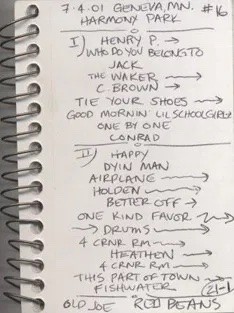 7.4.01 GENEVA, MN. #16
HARMONY PARK
I) HENRY P. →
WHO DO YOU BELONG TO
JACK
THE WAKER →
C. BROWN →
TIE YOUR SHOES →
GOOD MORNIN' LIL SCHOOLGIRL
ONE BY ONE
CONRAD
II) HAPPY
DYIN MAN
AIRPLANE →
HOLDEN →
BETTER OFF →
ONE KIND FAVOR →
→ DRUMS →
4 CRNR RM →
HEATHEN →
4 CRNR RM →
THIS PART OF TOWN →
FISHWATER
21-1
OLD JOE RED BEANS